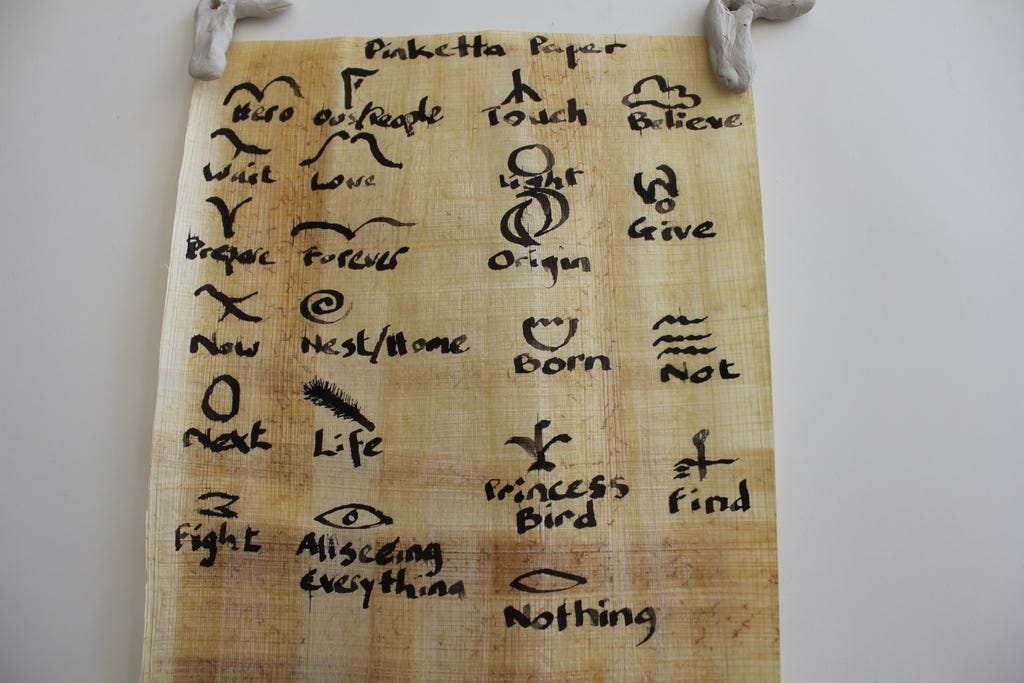 Pinketta Paper
Hero
ous/People
Touch
Believe
Wait
Love
Light
Give
Prepare
Forever
Origin
Now
Nest/Home
Born
Not
Next
Life
Princess
Bird
Find
Fight
Allseeing
Everything
Nothing